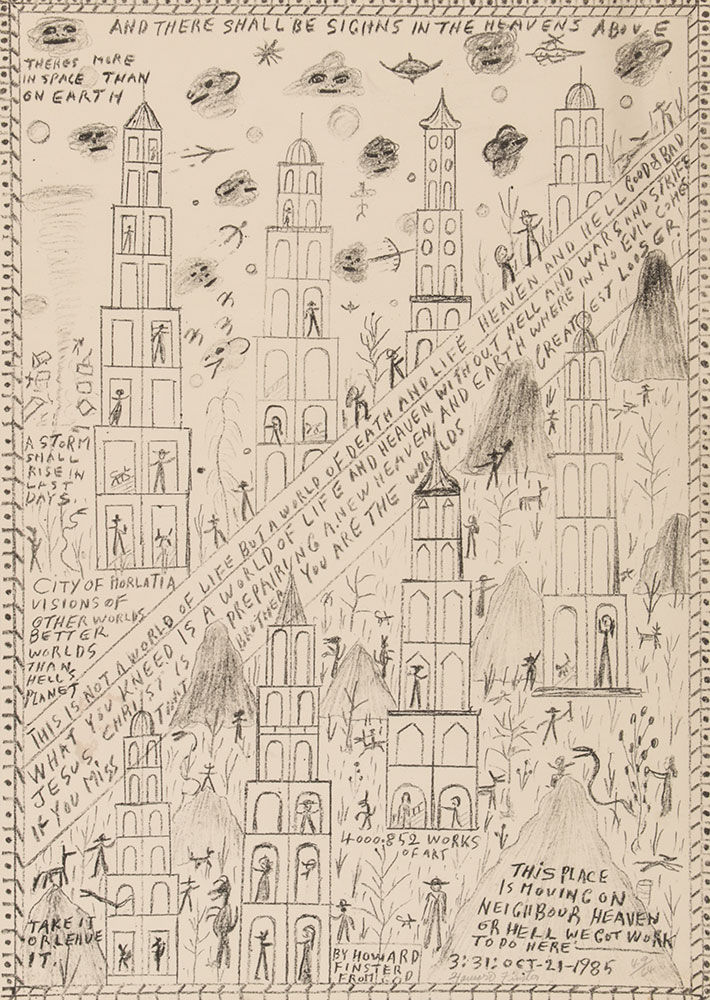 AND THERE SHALL BE SIGHNS IN THE HEAVENS ABOVE
THERES MORE
IN SPACE THAN
ON EARTH
A STORM
SHALL
RISE IN
LAST
DAYS.
CITY OF MORLATIA
VISIONS OF
OTHER WORLDS
BETTER
WORLDS
THAN
HELLS
PLANET
THIS IS NOT A WORLD OF LIFE BUT A WORLD OF DEATH AND LIFE HEAVEN AND HELL GOOD & BAD
WHAT YOU KNEED IS A WORLD OF LIFE AND HEAVEN WITHOUT HELL AND WARS AND STRIFE
JESUS CHRIST IS PREPAIRING A NEW HEAVEN AND EARTH WHERE IN NO EVIL COMES
IF YOU MISS BROTHER YOU ARE THE WORLDS GREATEST LOOSER
4000.852 WORKS
OF ART
THIS PLACE
IS MOVING ON
NEIGHBOUR HEAVEN
OR HELL WE GOT WORK
TO DO HERE
3:31: OCT-21-1985
TAKE IT
OR LEAVE
IT.
BY HOWARD
FINSTER
FROM GOD